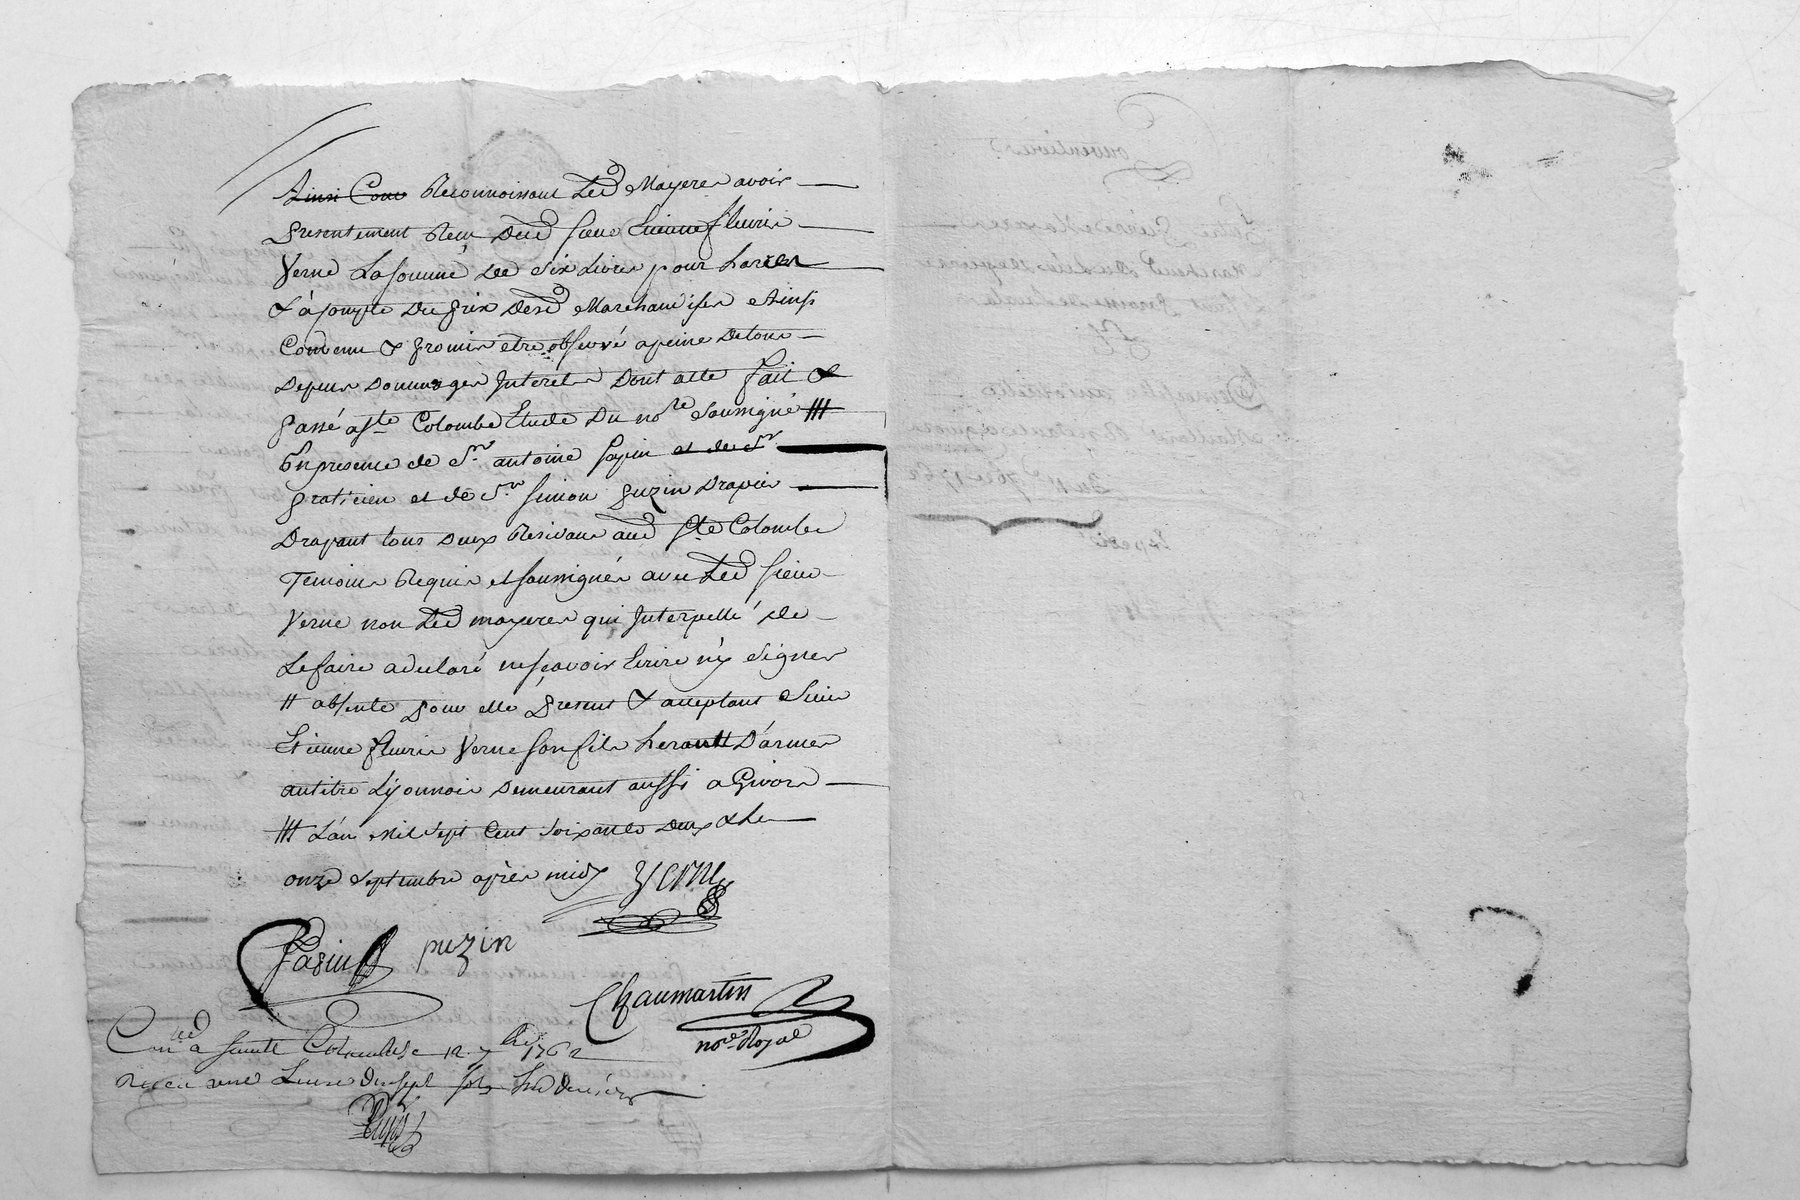 Ainsi Conv Reconnoissant Led Mayeres avoir
presentement Reçu Dud sieur Etienne fleurie
Verne La somme de Six Livres pour harres
& à compte Du prix Desd Marchandises Ainsi
Convenu & promis etre observé a peine De tous
Depens Dommages Interets Dont acte fait &
passé a Ste Colombe Etude Du nore Soussigné ///
En presence de Sr antoine Papin et de Sr
praticien et de Sr Simon puzin Drapier
Drapant tous Deux Residans aud Ste Colombe
Temoins Requis et soussignés avec Led sieur
Verne non Led mayeres qui Interpellé de
Le faire a declaré ne sçavoir Ecrire n'y Signer
// absente pour elle present & acceptant Sieur
Etienne fleurie Verne son fils herault D'armes
au titre Lyonnois Demeurant aussi a Givors
/// L'an Mil Sept Cent Soixante Deux & Le
onze Septembre après midy Verne
Papin puzin
Chaumartin
nore Royal
Conllé a Sainte Colombe le 12 7bre 1762
Reçu une Livre Dix sept sols